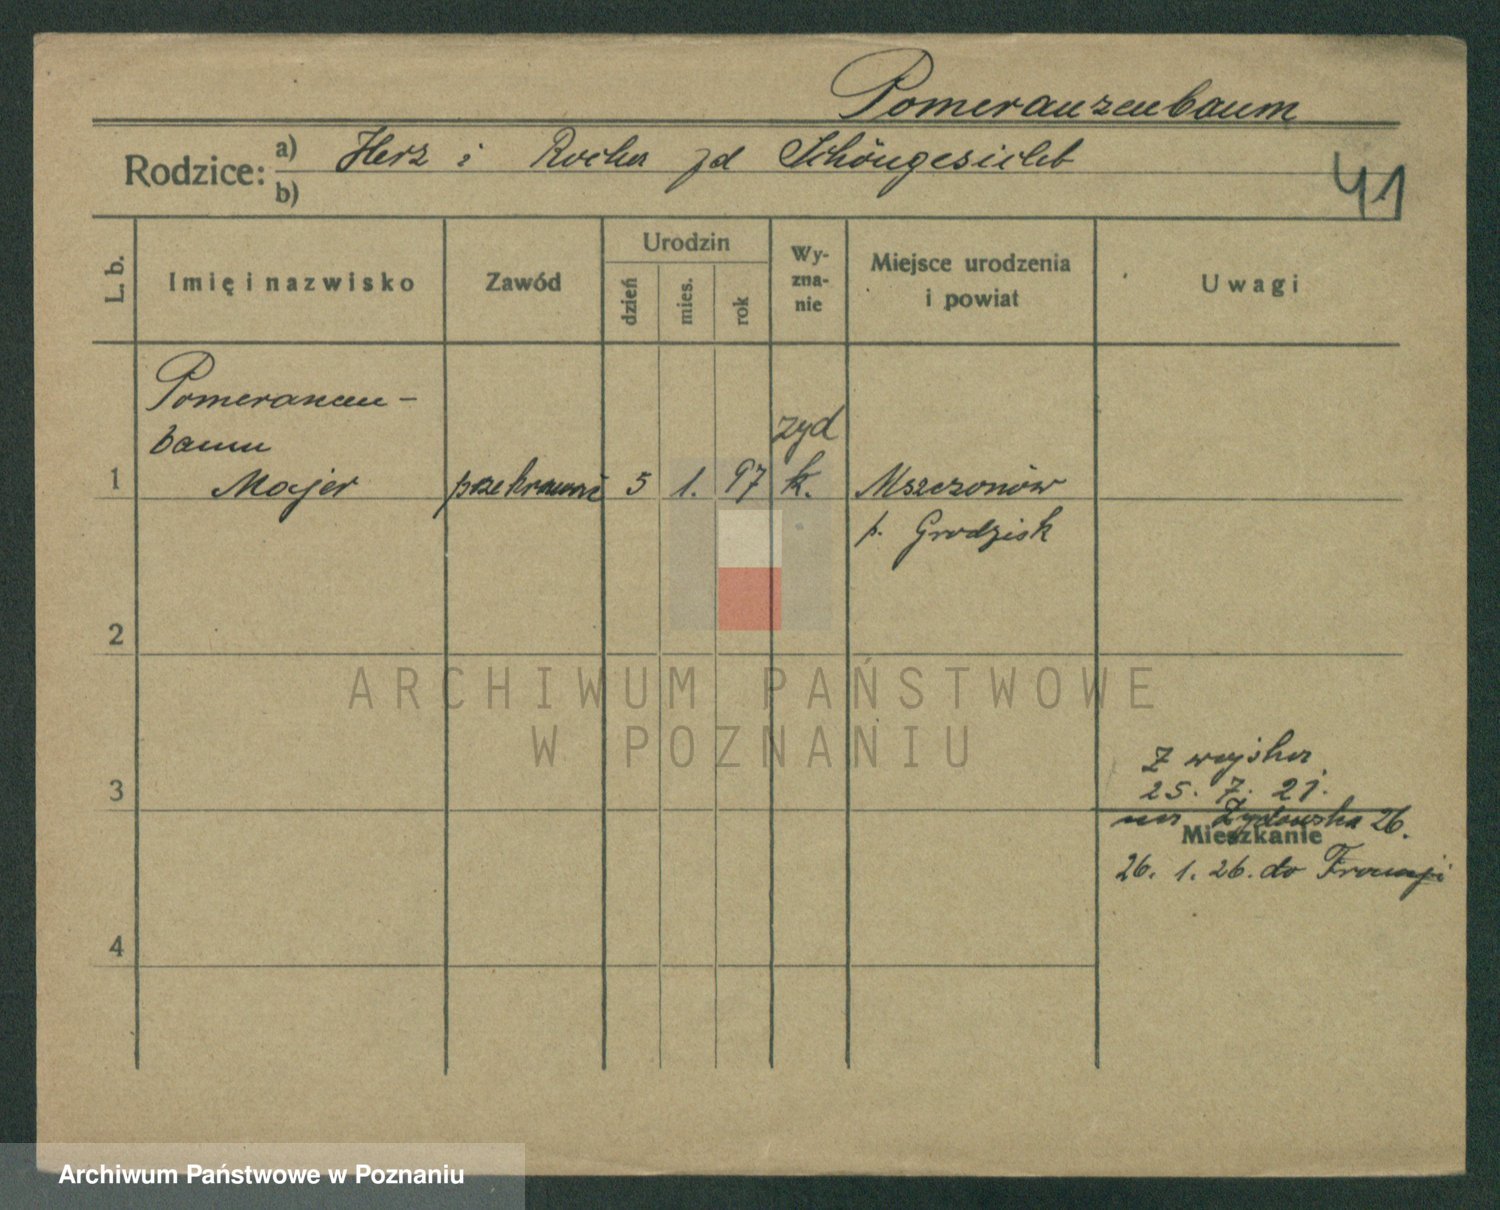 Pomeranzenbaum
Rodzice: a) Herz i zd Schöngesicht
b)
41
L. b.
Imię i nazwisko
Zawód
Urodzin
dzień
mies.
rok
Wy-
zna-
nie
Miejsce urodzenia
i powiat
Uwagi
Pomeranzen-
baum
żyd
1 Majer 5 1. 97 k. Mszczonów
p. Grodzisk
2
ARCHIWUM PAŃSTWOWE
W POZNANIU
3
Z wojska
25. 7. 21.
na Żydowska 26.
Mieszkanie
26. 1. 26. do Francji
4
Archiwum Państwowe w Poznaniu